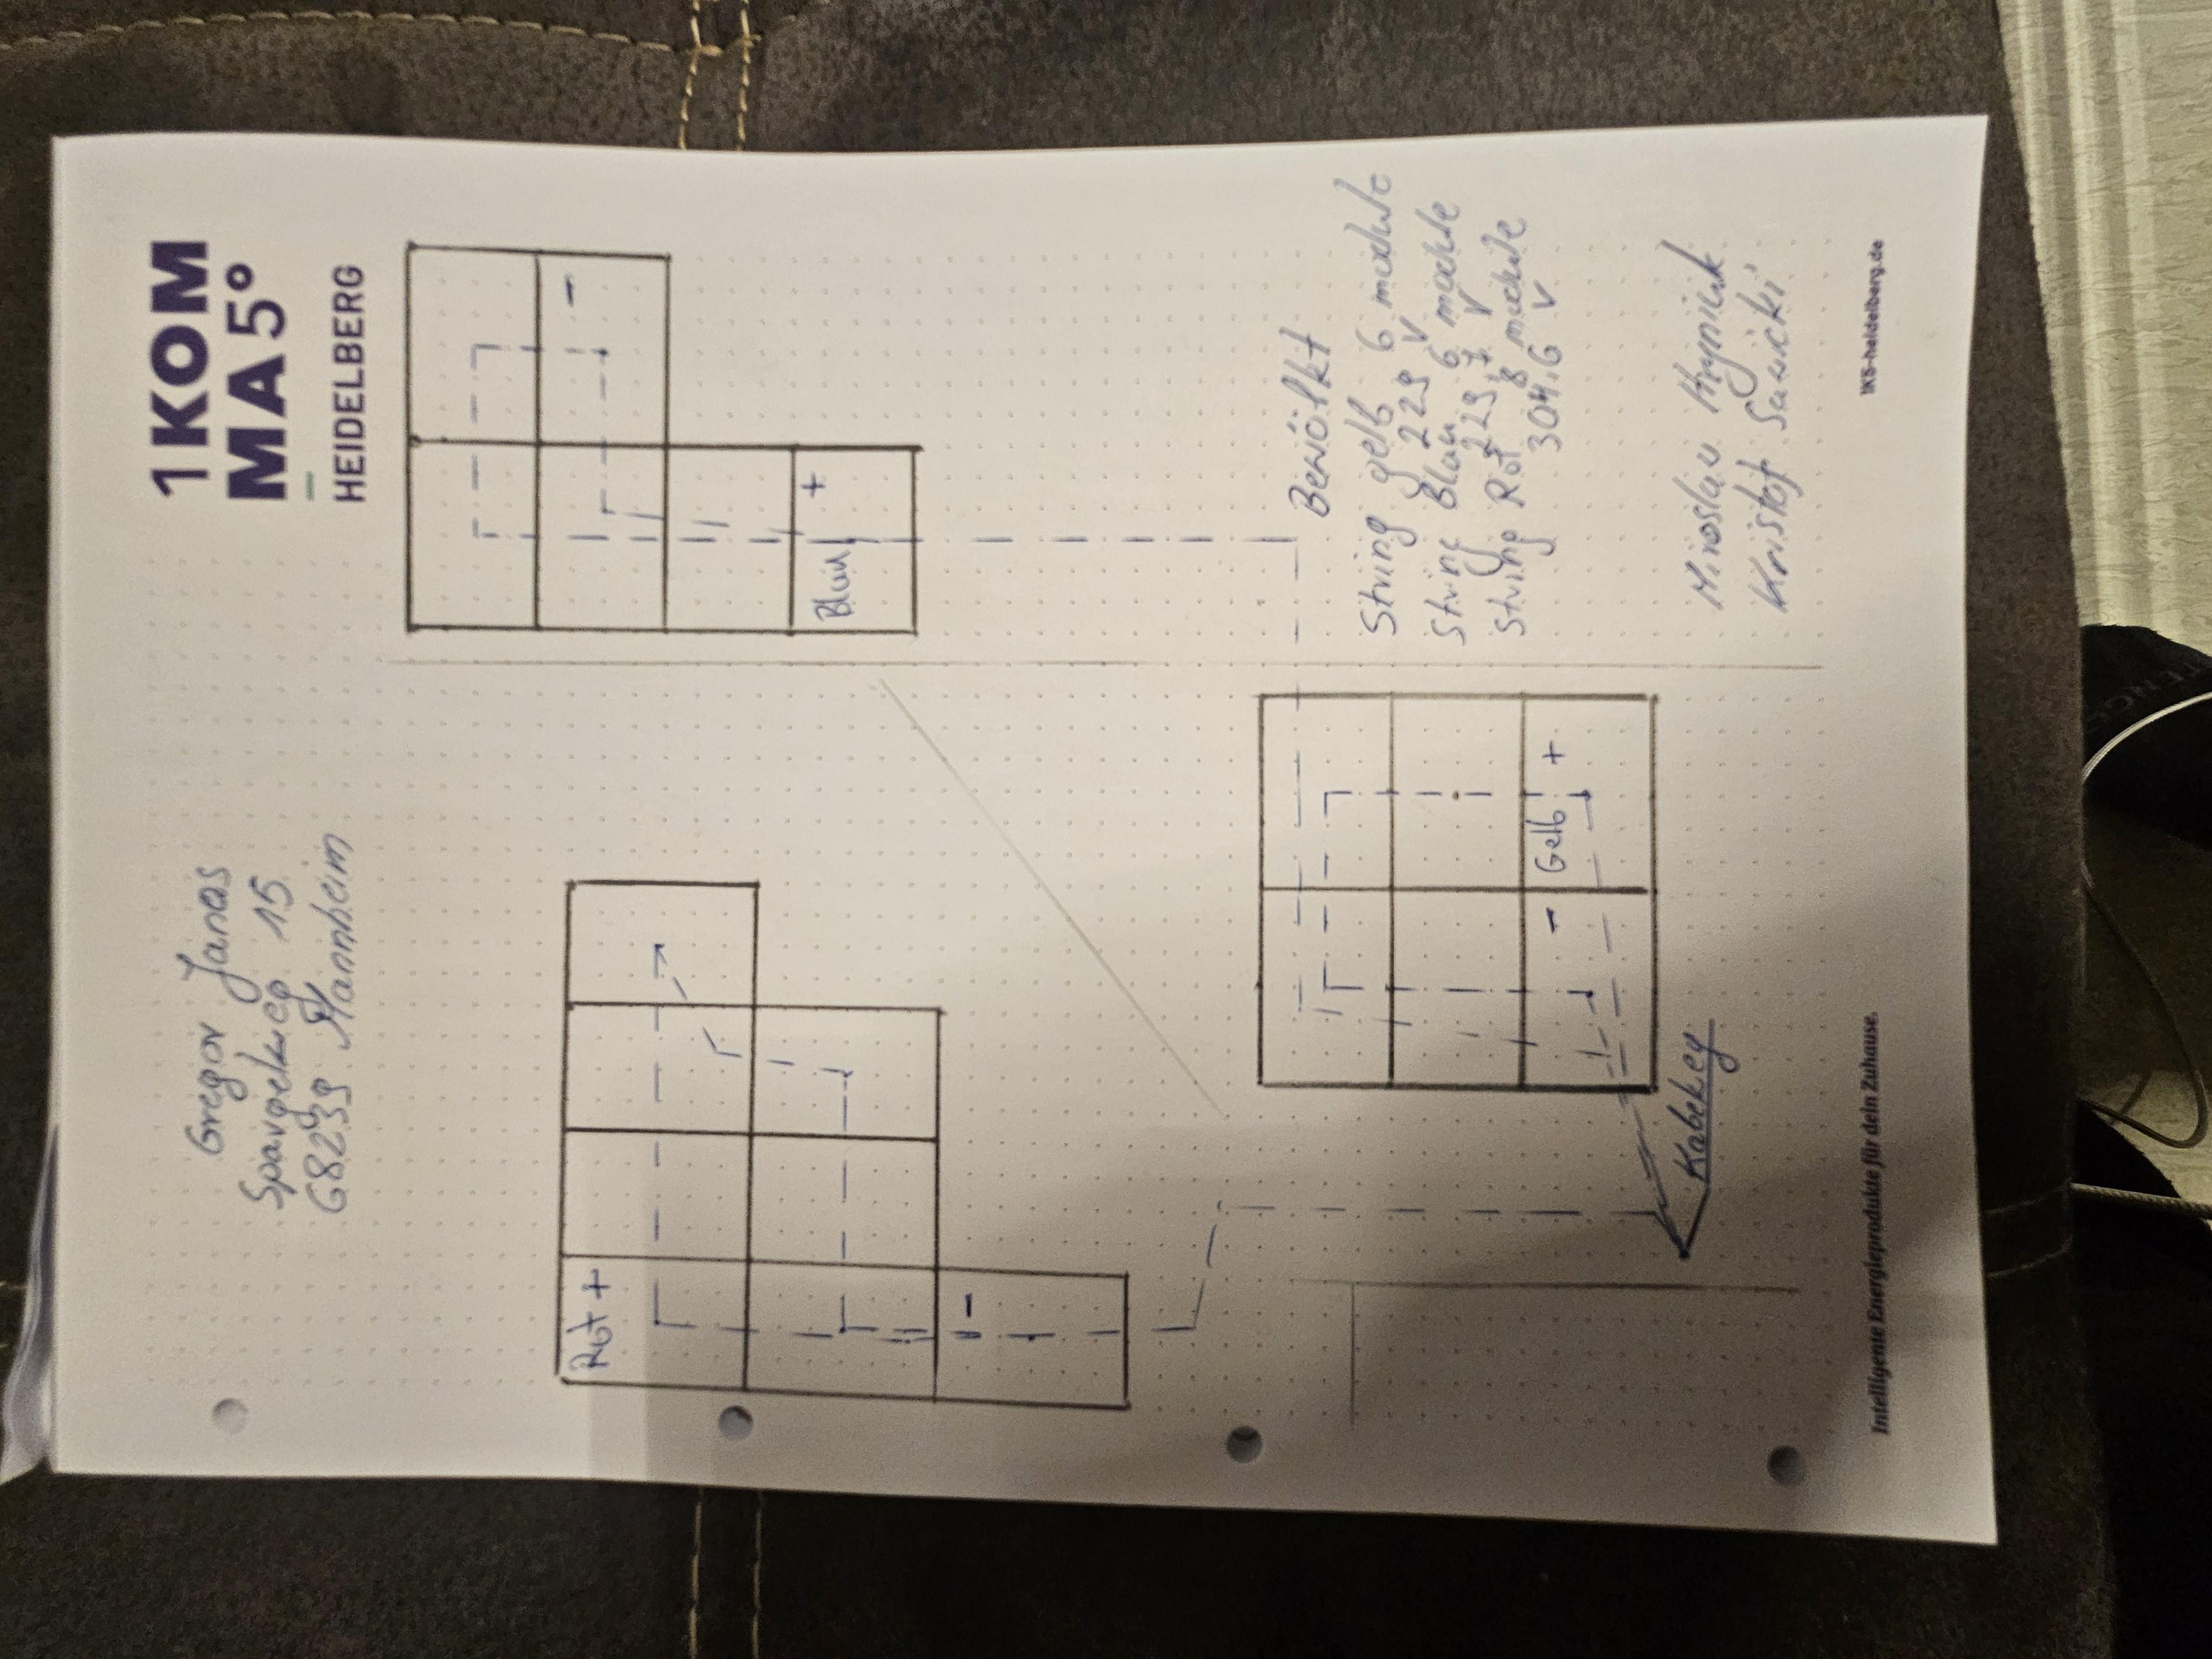 1KOM
MA5°
HEIDELBERG
Gregor Janas
Spargelweg 15
68239 Mannheim
Rot +
-
-
Blau
+
Bewölkt
String gelb 6 module
229 V
String Blau 6 module
229,7 V
String Rot 8 module
304,6 V
- Gelb +
Kabelweg
Miroslav
Kristof Sawicki
Intelligente Energieprodukte für dein Zuhause.
1K5-heidelberg.de